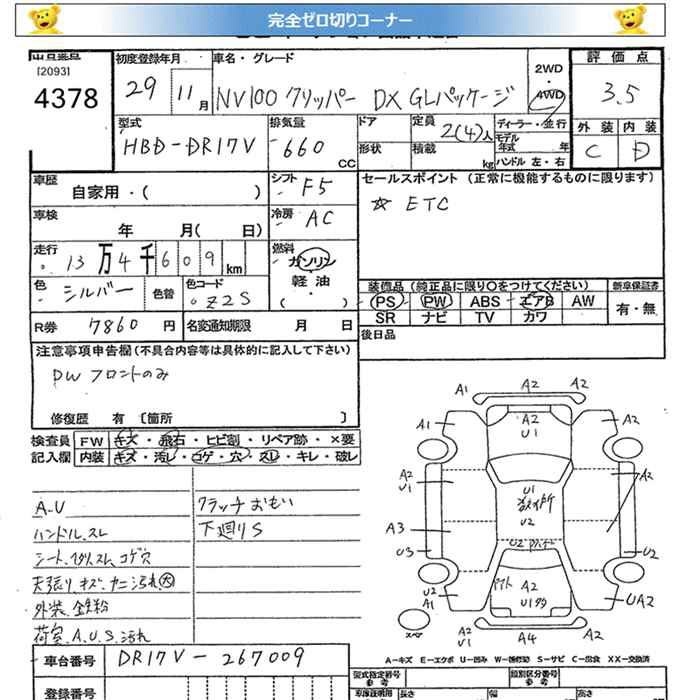 完全ゼロ切りコーナー
出品番号
[2093]
4378
初度登録年月
29 11月
車名・グレード
NV100 クリッパー DX GLパッケージ
2WD
・
4WD
評価点
3.5
外装 内装
C D
型式
HBD-DR17V
排気量
660
CC
ドア
形状
定員
2(4)人
積載
kg
ディーラー・並行
モデル
年式 年
ハンドル 左・右
車歴
自家用・( )
シフト
F5
車検
年 月( 日)
冷房
AC
走行
13万4千609km
燃料
ガソリン
軽油
・
( )
色
シルバー
色替
色コード
Z2S
R券
7860 円
名変通知期限
月 日
セールスポイント (正常に機能するものに限ります)
☆ ETC
装備品 (純正品に限り○をつけてください)
PS PW ABS エアB AW
SR ナビ TV カワ
新車保証書
有・無
後日品
注意事項申告欄 (不具合内容等は具体的に記入して下さい)
PW フロントのみ
修復歴 有 〔箇所 〕
検査員
記入欄
FW キズ・飛石・ヒビ割・リペア跡・×要
内装 キズ・汚レ・コゲ・穴・スレ・キレ・破レ
A.U
ハンドル.スレ
天張り.キズ.ヤニ汚れ大
外装.鉄粉
荷室.A.U.S.汚れ
クラッチおもい
下廻りS
A1 A2 A2
A1 A2 U1 A2
A2 U1 U1 U2 A2
A3 U3 U2 U2
U2 A1 A2 U1 UA2
スペア
A2 U1 A4 A2
A-キズ E-エクボ U-凹み W-補修跡 S-サビ C-腐食 XX-交換済
車台番号
DR17V-267009
登録番号
型式指定番号
参考
類別区分番号
参考
長さ
幅
高さ